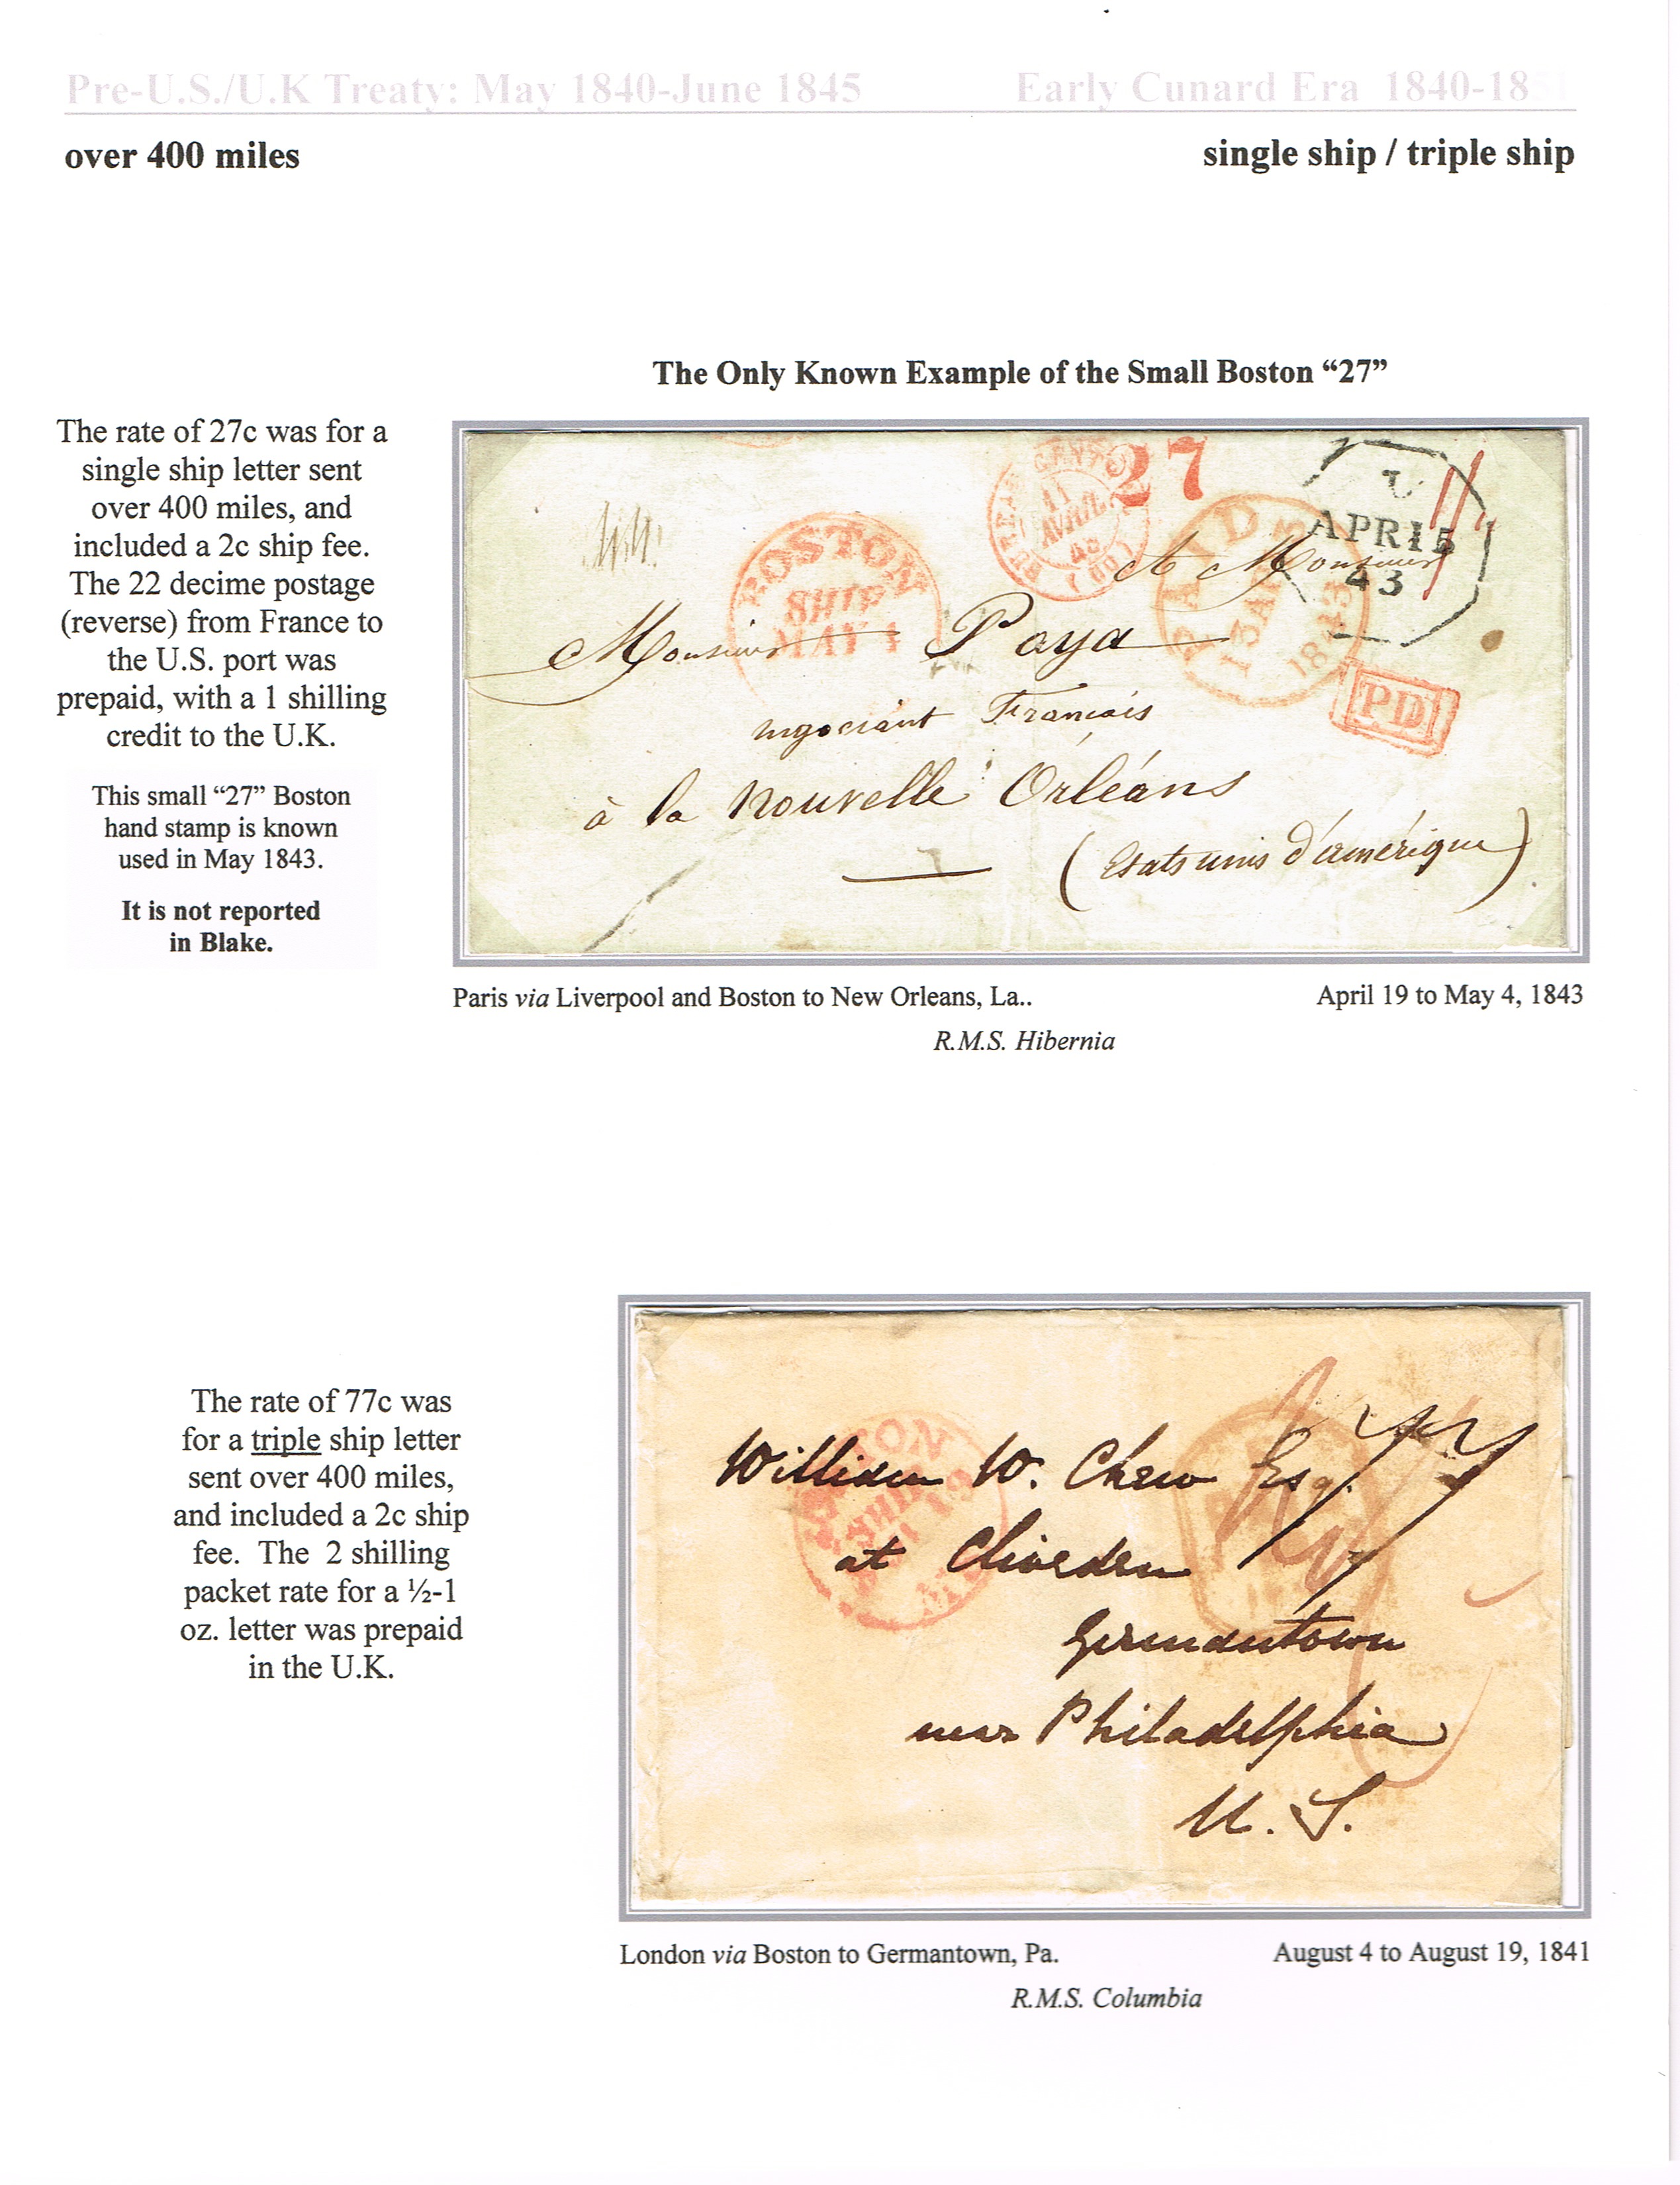 Pre-U.S./U.K Treaty: May 1840-June 1845
Early Cunard Era 1840-1851
over 400 miles
single ship / triple ship
The Only Known Example of the Small Boston “27”
The rate of 27c was for a
single ship letter sent
over 400 miles, and
included a 2c ship fee.
The 22 decime postage
(reverse) from France to
the U.S. port was
prepaid, with a 1 shilling
credit to the U.K.
This small “27” Boston
hand stamp is known
used in May 1843.
It is not reported
in Blake.
27
11
AVRIL
43
BOSTON
SHIP
MAY 4
PAID
13AP13
1843
U
APR15
43
PD
A Monsieur
Monsieur Paya
negociant Francais
à la Nouvelle Orléans
(Etats unis d'amérique)
Paris via Liverpool and Boston to New Orleans, La..
April 19 to May 4, 1843
R.M.S. Hibernia
The rate of 77c was
for a triple ship letter
sent over 400 miles,
and included a 2c ship
fee. The 2 shilling
packet rate for a ½-1
oz. letter was prepaid
in the U.K.
BOSTON
SHIP
19
77
William W. Chew Esq.
at Cliveden
Germantown
near Philadelphia
U. S.
London via Boston to Germantown, Pa.
August 4 to August 19, 1841
R.M.S. Columbia